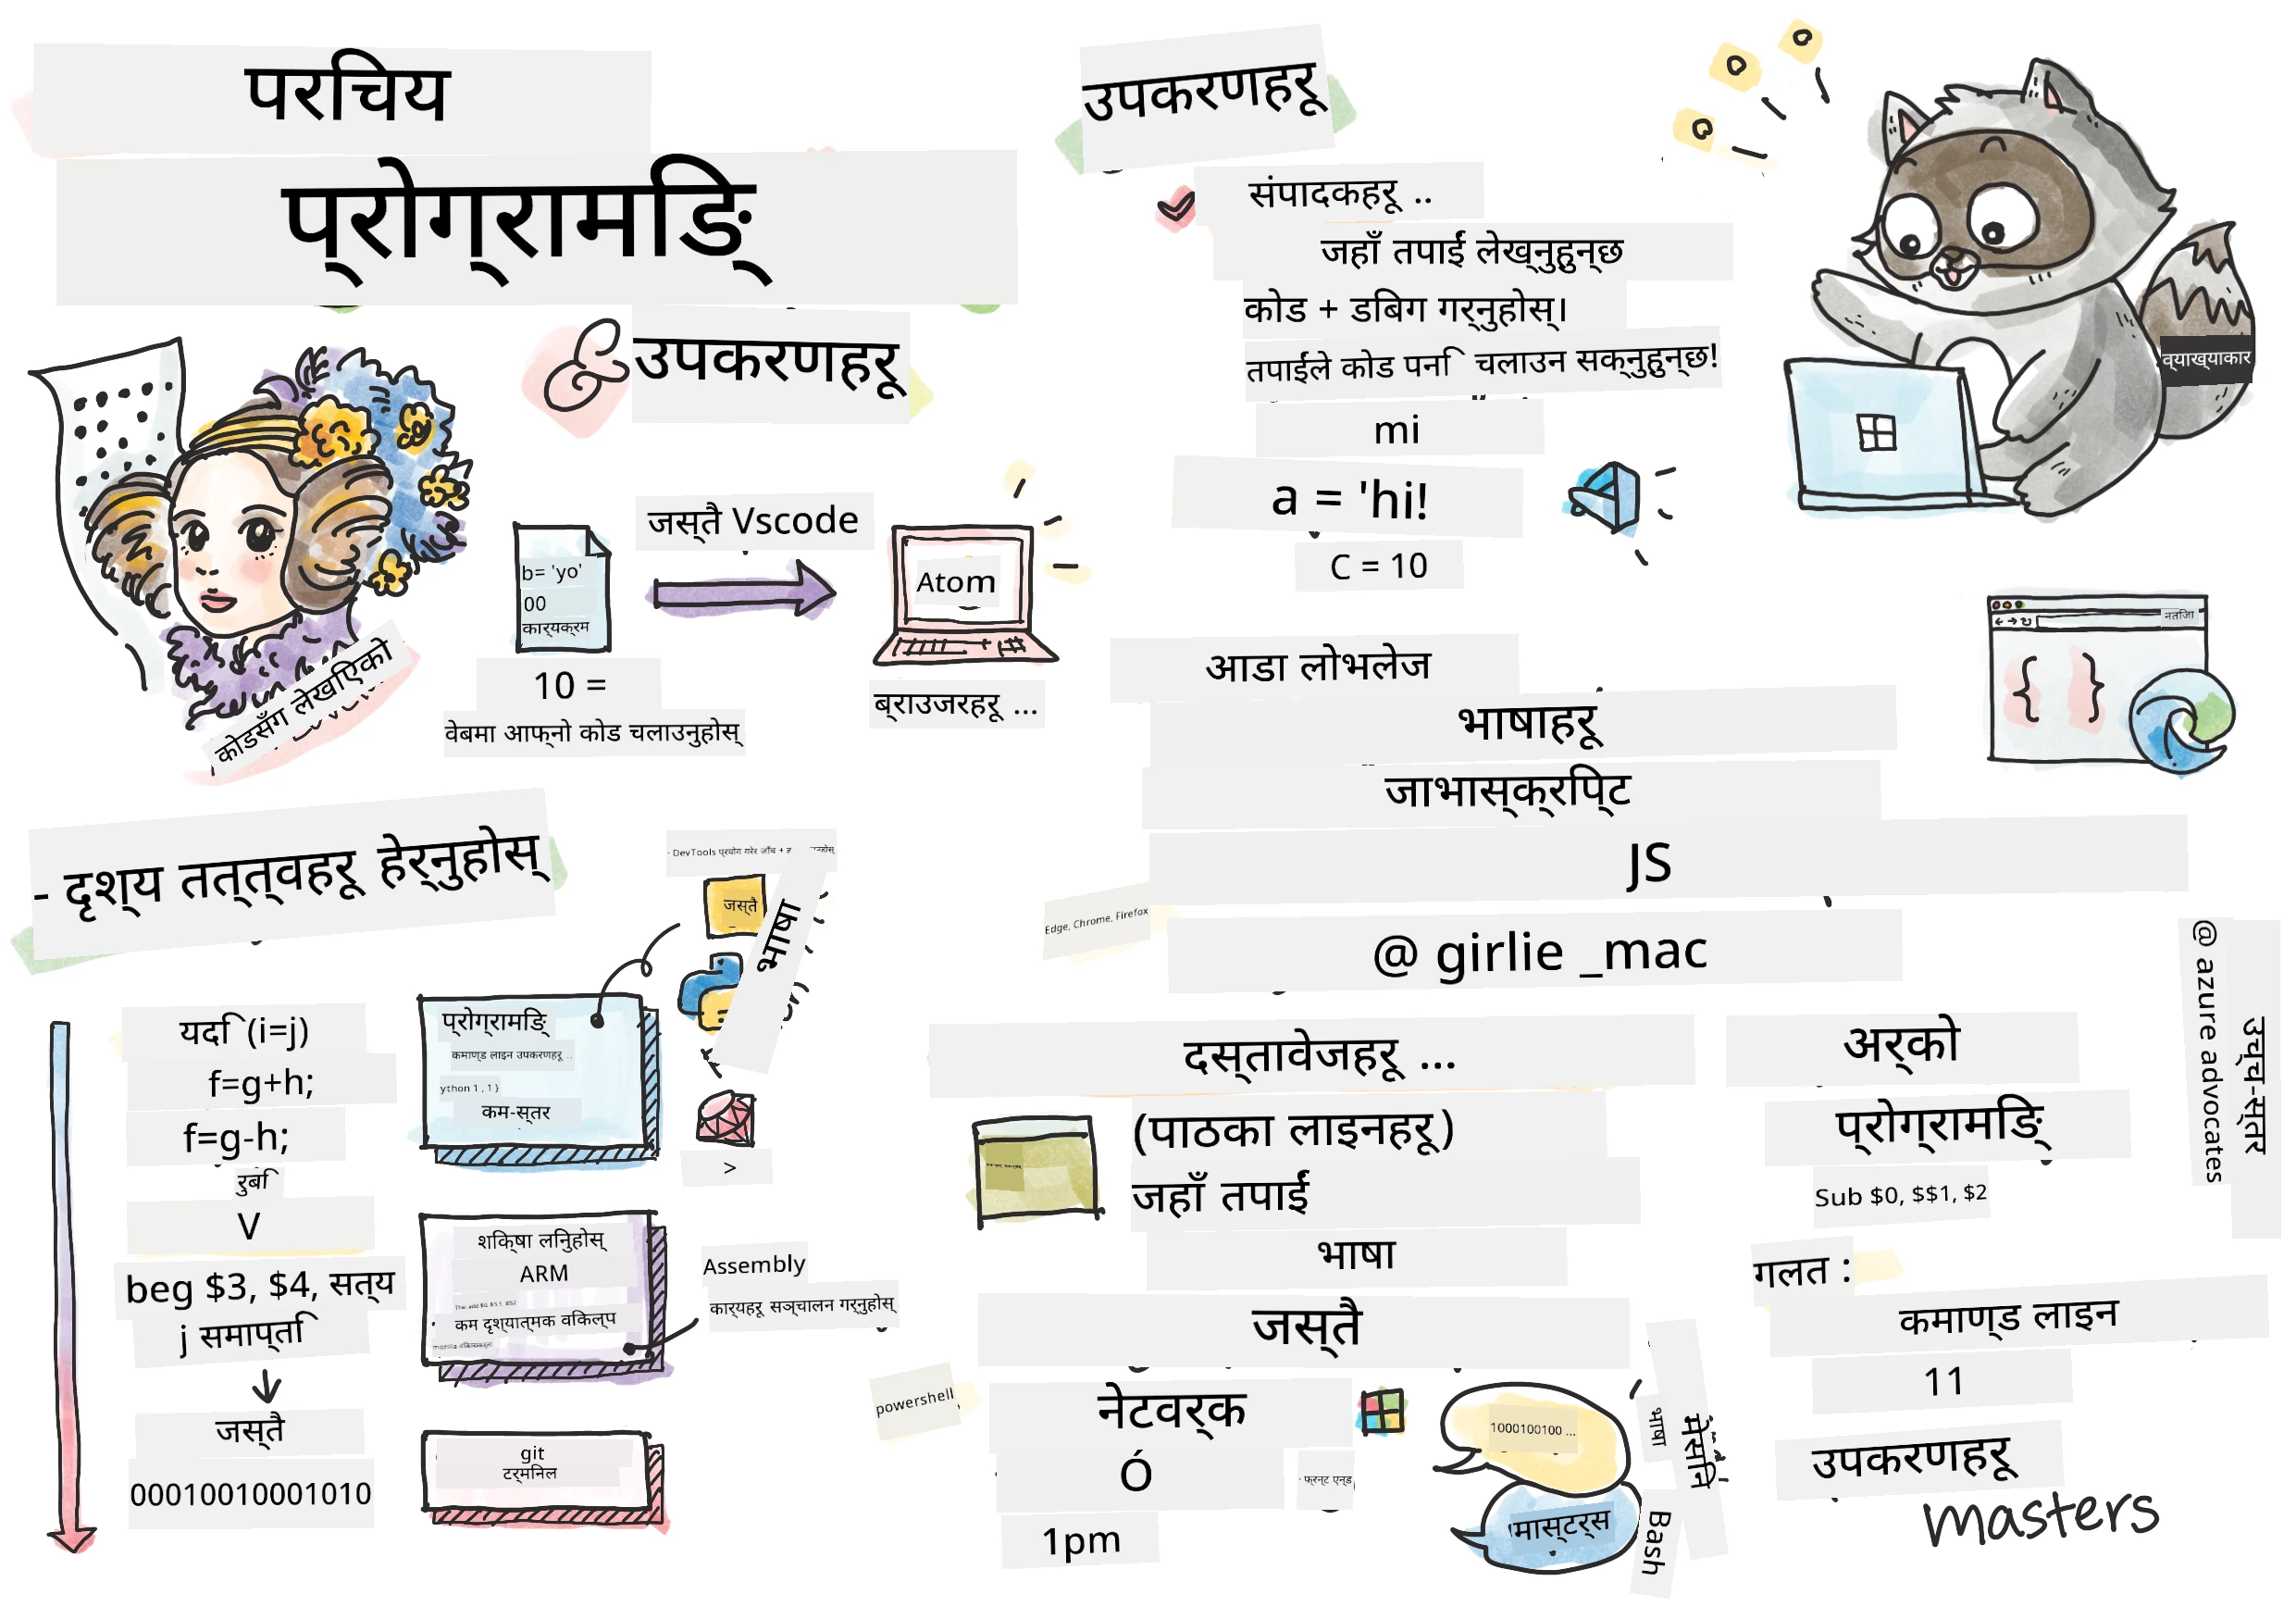 परिचय
प्रोग्रामिङ
& उपकरणहरू
जस्तै Vscode
b= 'yo'
00
कार्यक्रम
Atom
10 =
वेबमा आफ्नो कोड चलाउनुहोस्
ब्राउजरहरू ...
कोडसँग लेखिएको
उपकरणहरू
संपादकहरू ..
जहाँ तपाईं लेख्नुहुन्छ
कोड + डिबग गर्नुहोस्।
तपाईंले कोड पनि चलाउन सक्नुहुन्छ!
mi
a = 'hi!
C = 10
व्याख्याकार
नतिजा
{ }
आडा लोभलेज
भाषाहरू
जाभास्क्रिप्ट
JS
Edge, Chrome, Firefox
@ girlie _mac
- दृश्य तत्त्वहरू हेर्नुहोस्
जस्तै
भाषा
यदि (i=j)
f=g+h;
f=g-h;
रुबी
V
beg $3, $4, सत्य
j समाप्ति
जस्तै
00010010001010
प्रोग्रामिङ
कमाण्ड लाइन उपकरणहरू ..
ython 1 , 1 }
कम-स्तर
>
शिक्षा लिनुहोस्
ARM
कम दृश्यात्मक विकल्प
Assembly
कार्यहरू सञ्चालन गर्नुहोस्
git
टर्मिनल
दस्तावेजहरू ...
(पाठका लाइनहरू)
जहाँ तपाईं
भाषा
जस्तै
powershell
नेटवर्क
Ó
1pm
फ्रन्ट एन्ड
1000100100 ...
मास्टर्स
भाषा
मेसिन
Bash
अर्को
प्रोग्रामिङ
Sub $0, $$1, $2
गलत :
कमाण्ड लाइन
11
उपकरणहरू
masters
@ azure advocates
उच्च-स्तर